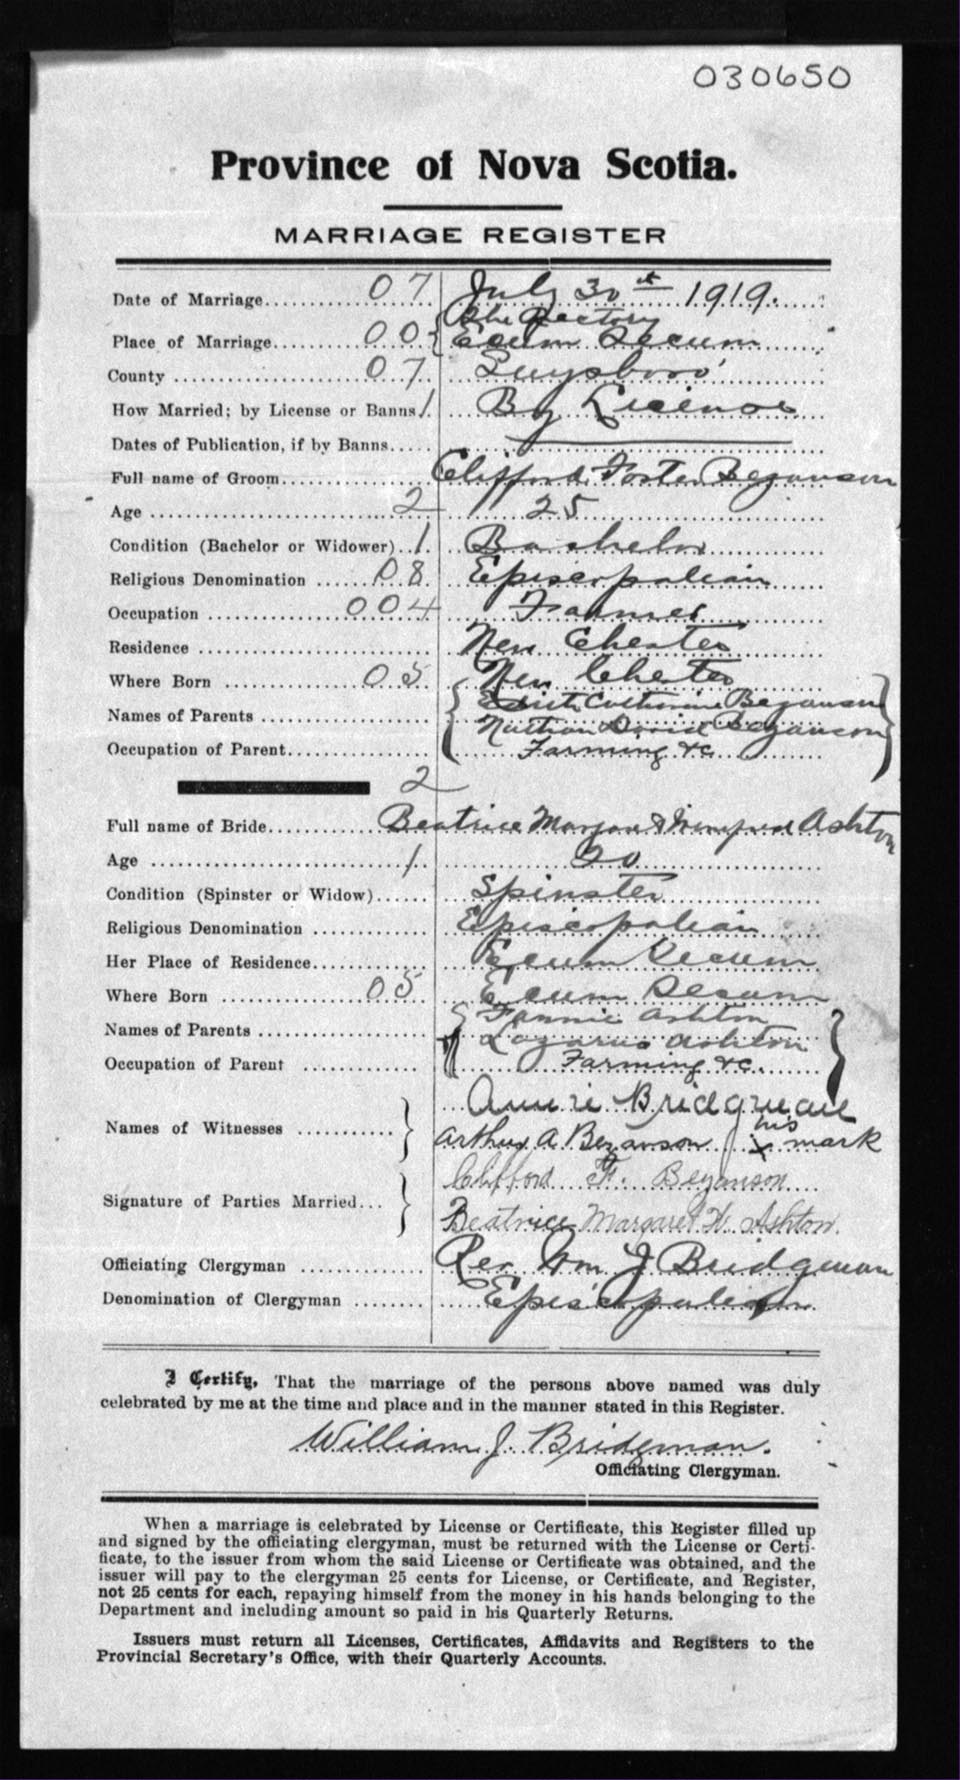 030650
Province of Nova Scotia.
MARRIAGE REGISTER
Date of Marriage 07 July 30th 1919.
The Rectory
Place of Marriage 00 Ecum Secum
County 07 Guysboro'
How Married; by License or Banns 1 By License
Dates of Publication, if by Banns
Full name of Groom Clifford Foster Bezanson
Age 2 25
Condition (Bachelor or Widower) 1 Bachelor
Religious Denomination 08 Episcopalian
Occupation 004 Farmer
Residence New Chester
Where Born 05 New Chester
Names of Parents Edith Catherine Bezanson
Nathan David Bezanson
Occupation of Parent Farming &c
2
Full name of Bride Beatrice Winifred Ashton
Age 1 20
Condition (Spinster or Widow) Spinster
Religious Denomination Episcopalian
Her Place of Residence Ecum Secum
Where Born 05 Ecum Secum
Names of Parents Fannie Ashton
Lazarus Ashton
Occupation of Parent Farming &c.
Names of Witnesses Annie Bridgman
Arthur A Bezanson his x mark
Signature of Parties Married Clifford F. Bezanson
Beatrice Margaret W. Ashton.
Officiating Clergyman Rev Wm J Bridgman
Denomination of Clergyman Episcopalian
I Certify, That the marriage of the persons above named was duly
celebrated by me at the time and place and in the manner stated in this Register.
William J. Bridgman.
Officiating Clergyman.
When a marriage is celebrated by License or Certificate, this Register filled up
and signed by the officiating clergyman, must be returned with the License or Certi-
ficate, to the issuer from whom the said License or Certificate was obtained, and the
issuer will pay to the clergyman 25 cents for License, or Certificate, and Register,
not 25 cents for each, repaying himself from the money in his hands belonging to the
Department and including amount so paid in his Quarterly Returns.
Issuers must return all Licenses, Certificates, Affidavits and Registers to the
Provincial Secretary's Office, with their Quarterly Accounts.